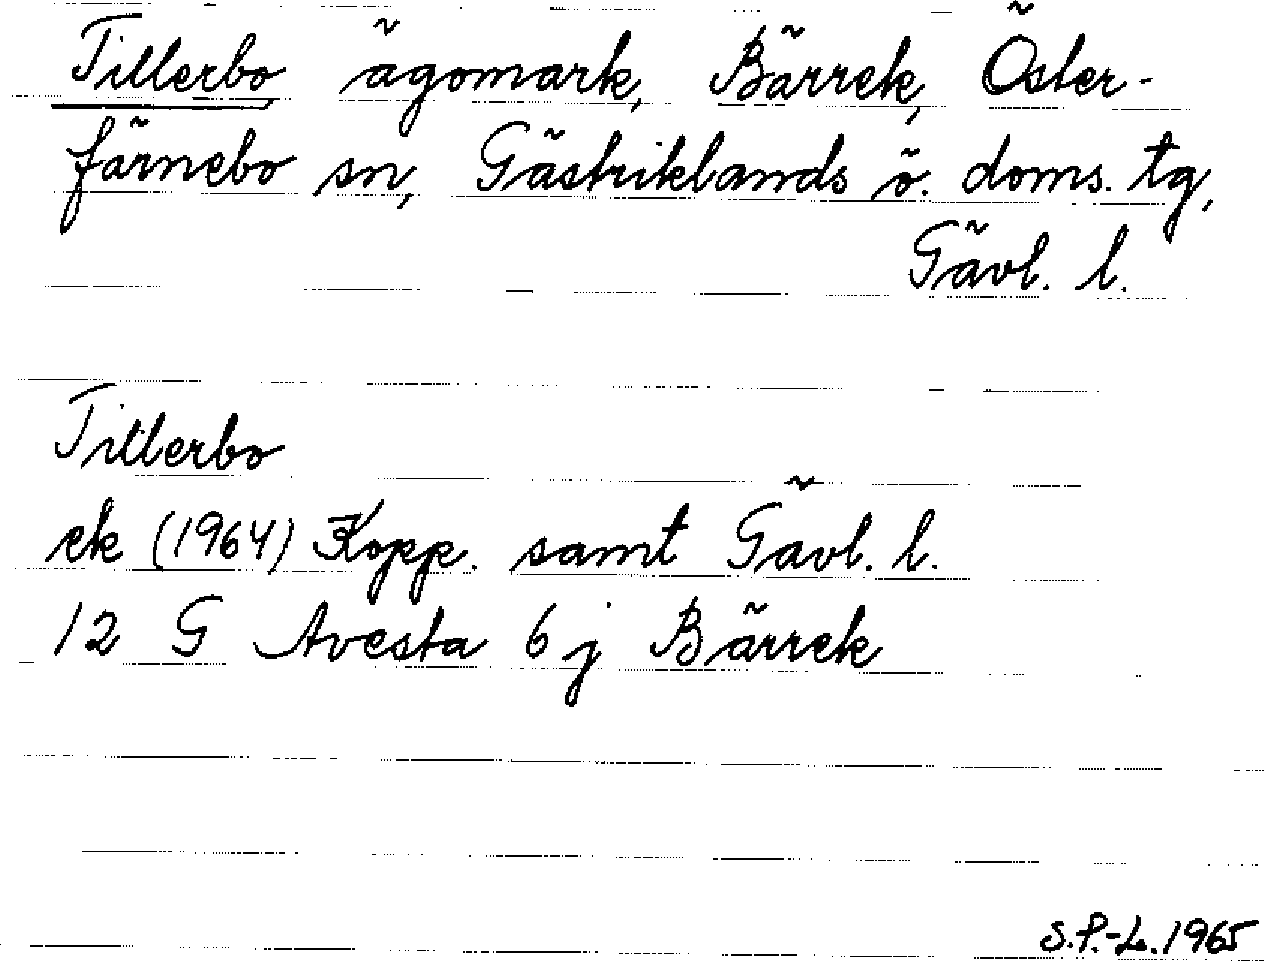 Tillerbo ägomark, Bärrek, Öster-
färnebo sn, Gästriklands ö. doms. tg,
Gävl. l.
Tillerbo
ek (1964) Kopp. samt Gävl. l.
12 G Avesta 6 j Bärrek
S.P.-L. 1965